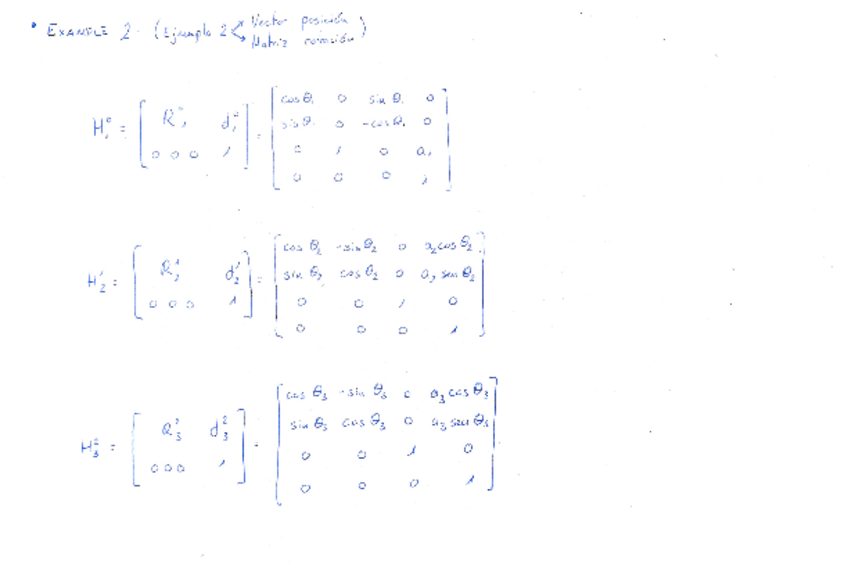 • EXAMPLE 2 - (Ejemplo 2 Vector posición
Matriz rotación)
H₁⁰ = [ R₁⁰ d₁⁰ ] = [ cos θ₁ 0 sin θ₁ 0
sin θ₁ 0 -cos θ₁ 0
0 0 0 1 0 1 0 a₁
0 0 0 1 ]
H₂¹ = [ d₂¹ ] = [ cos θ₂ -sin θ₂ 0 a₂ cos θ₂
sin θ₂ cos θ₂ 0 a₂ sen θ₂
0 0 0 1 0 0 1 0
0 0 0 1 ]
H₃² = [ R₃² d₃² ] = [ cos θ₃ -sin θ₃ 0 a₃ cos θ₃
sin θ₃ cos θ₃ 0 a₃ sen θ₃
0 0 0 1 0 0 1 0
0 0 0 1 ]